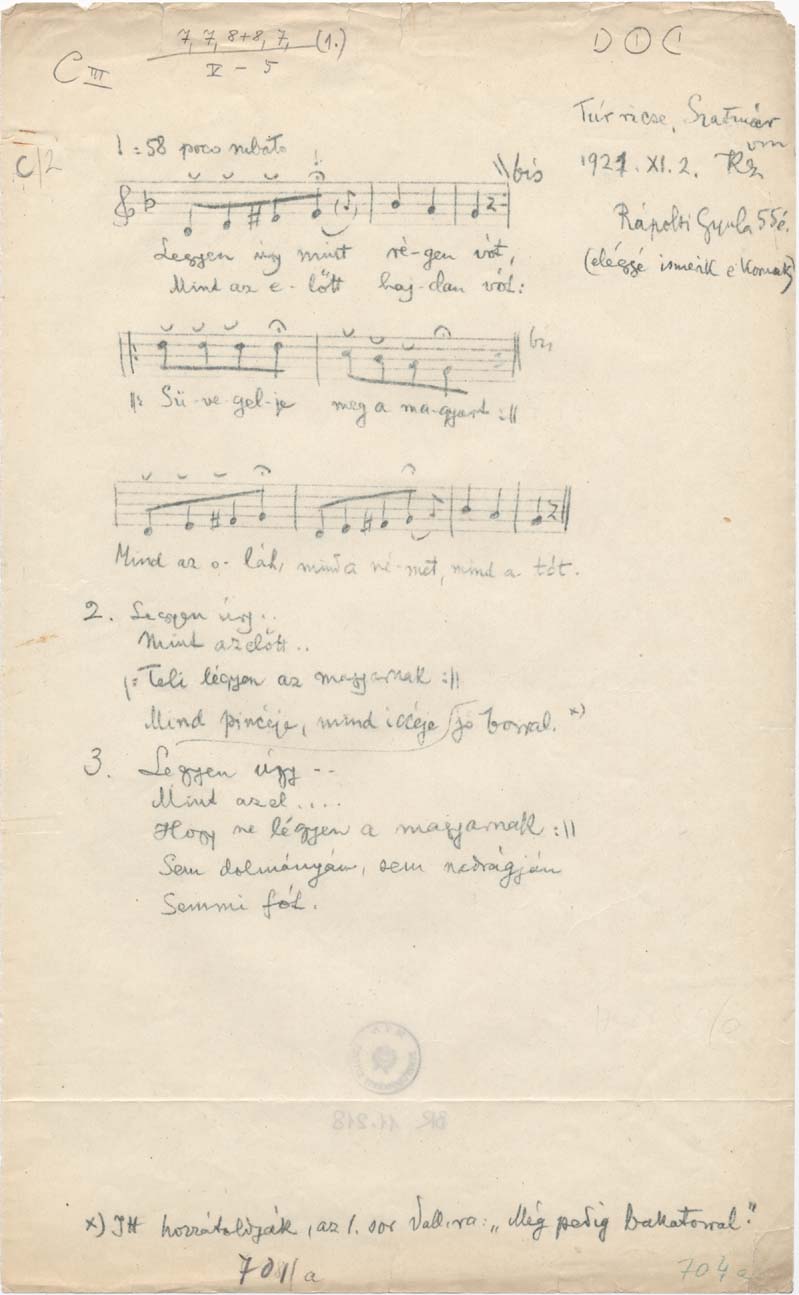 7, 7, 8+8, 7, (1.)
V – 5
C III
DOC
Túrricse, Szatmár
vm
1921. XI. 2. Kz
C/2
♩=58 poco rubato
bis
Rápolti Gyula 55é.
Legyen úgy mint ré-gen vót,
Mind az e-lőtt haj-dan vót:
(eléggé ismerik e
bis
||: Sü-ve-gel-je meg a ma-gyart :||
Mind az o-láh, mind a né-met, mind a tót.
2. Legyen úgy..
Mint azelőtt..
|: Teli légyen az magyarnak :||
Mind pincéje, mind iccéje jó borral. x)
3. Legyen úgy --
Mint azel....
Hogy ne légyen a magyarnak :||
Sem dolmányán, sem nadrágján
Semmi fót.
BR 11.218
x) Itt hozzátoldják, az 1. sor dall.ra: „Még pedig bakatorral."
701/a
704 a